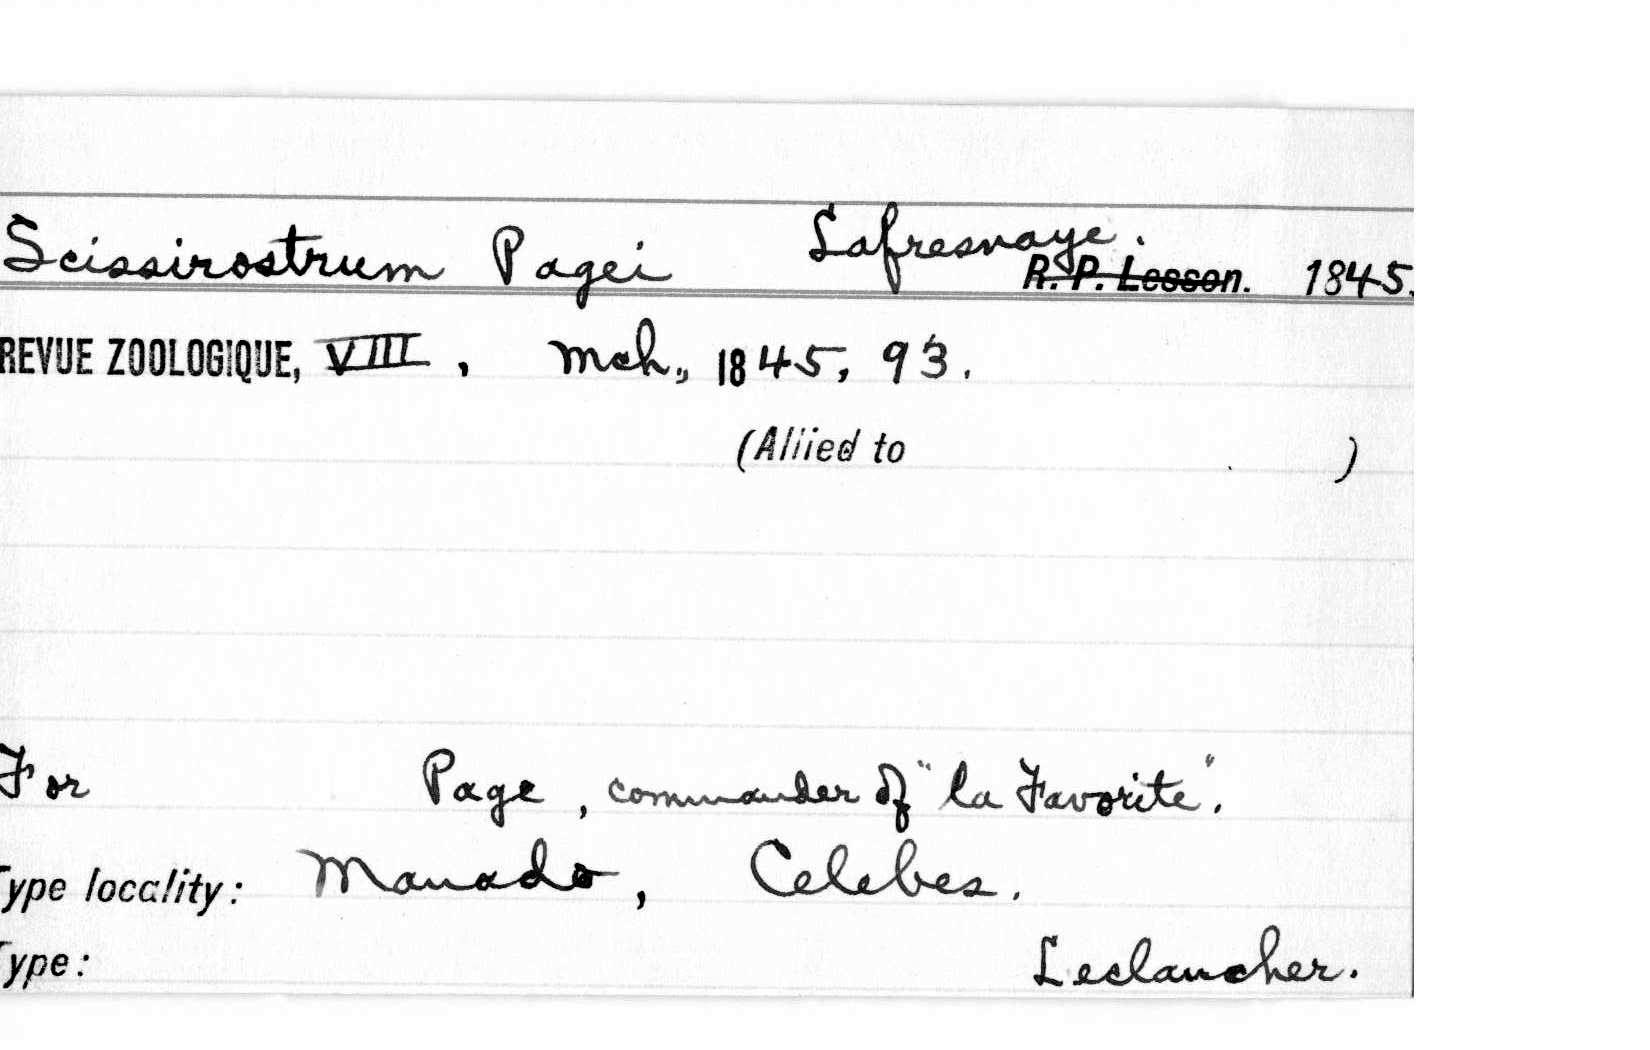 Scissirostrum Pagei Lafresnaye.
R. P. Lesson. 1845.
REVUE ZOOLOGIQUE, VIII, Mch., 1845, 93.
(Allied to )
For Page, commander of "la Favorite".
Type locality: Manado, Celebes.
Type: Leclancher.